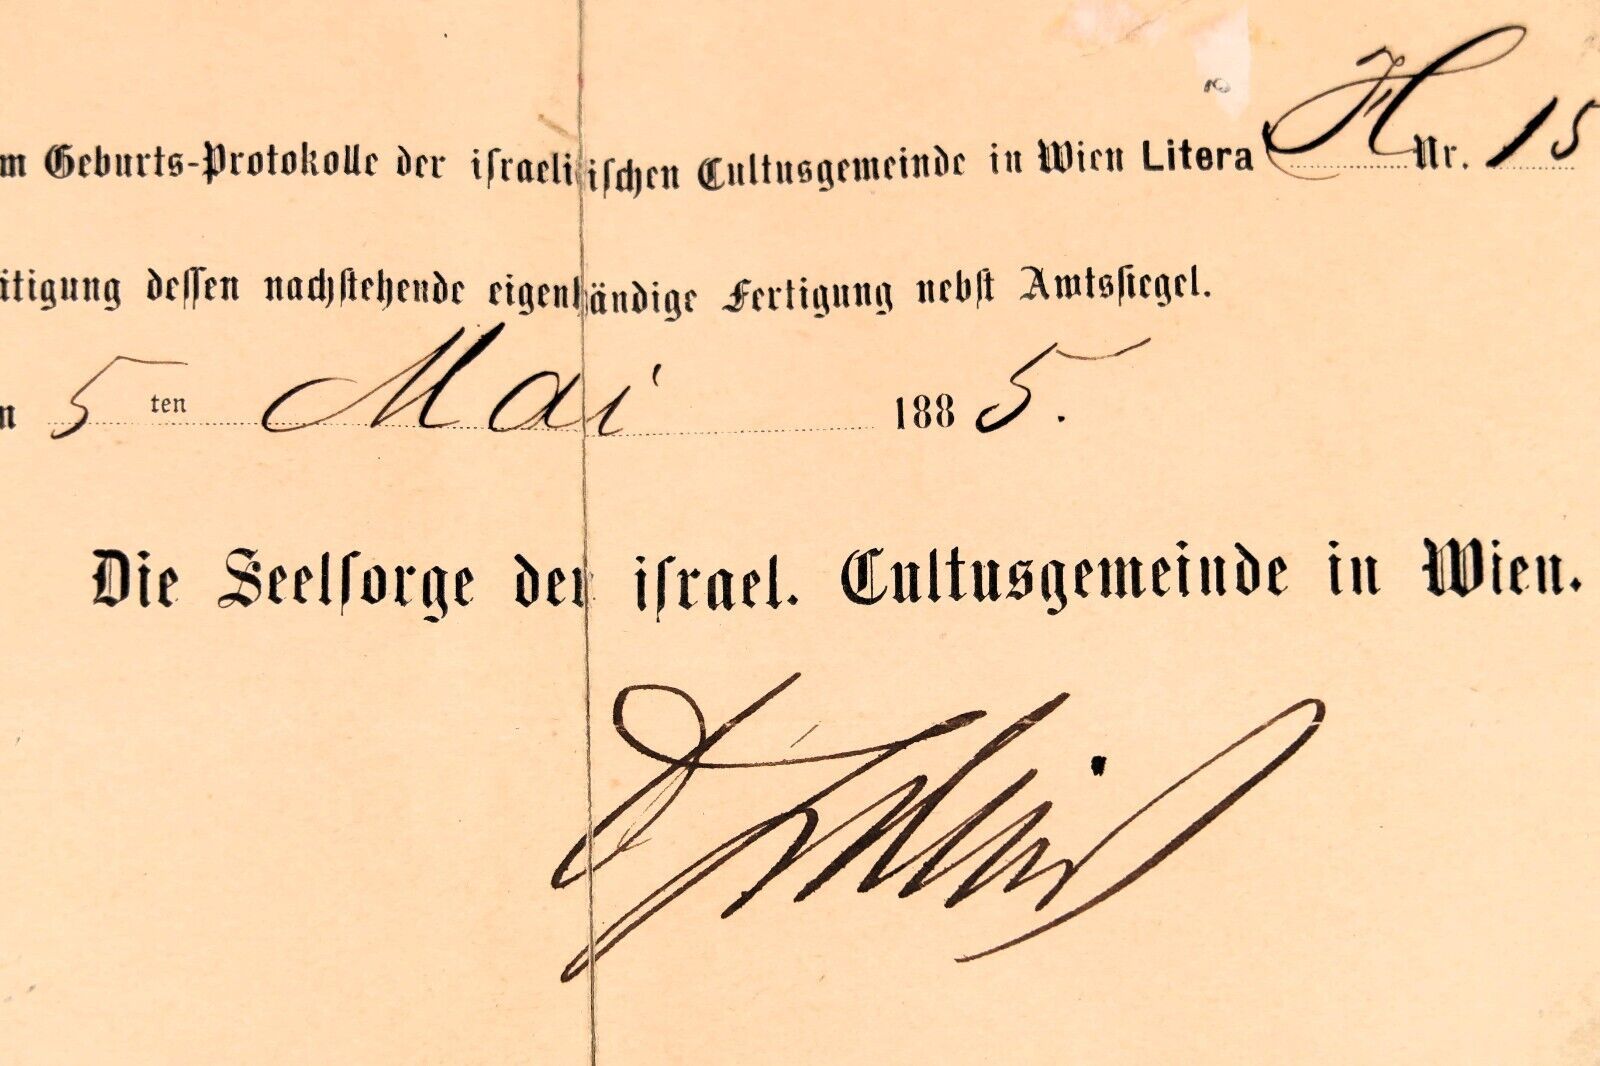 m Geburts-Protokolle der israelitischen Cultusgemeinde in Wien Litera H Nr. 15
ätigung dessen nachstehende eigenhändige Fertigung nebst Amtssiegel.
n 5 ten Mai 1885.
Die Seelsorge der israel. Cultusgemeinde in Wien.